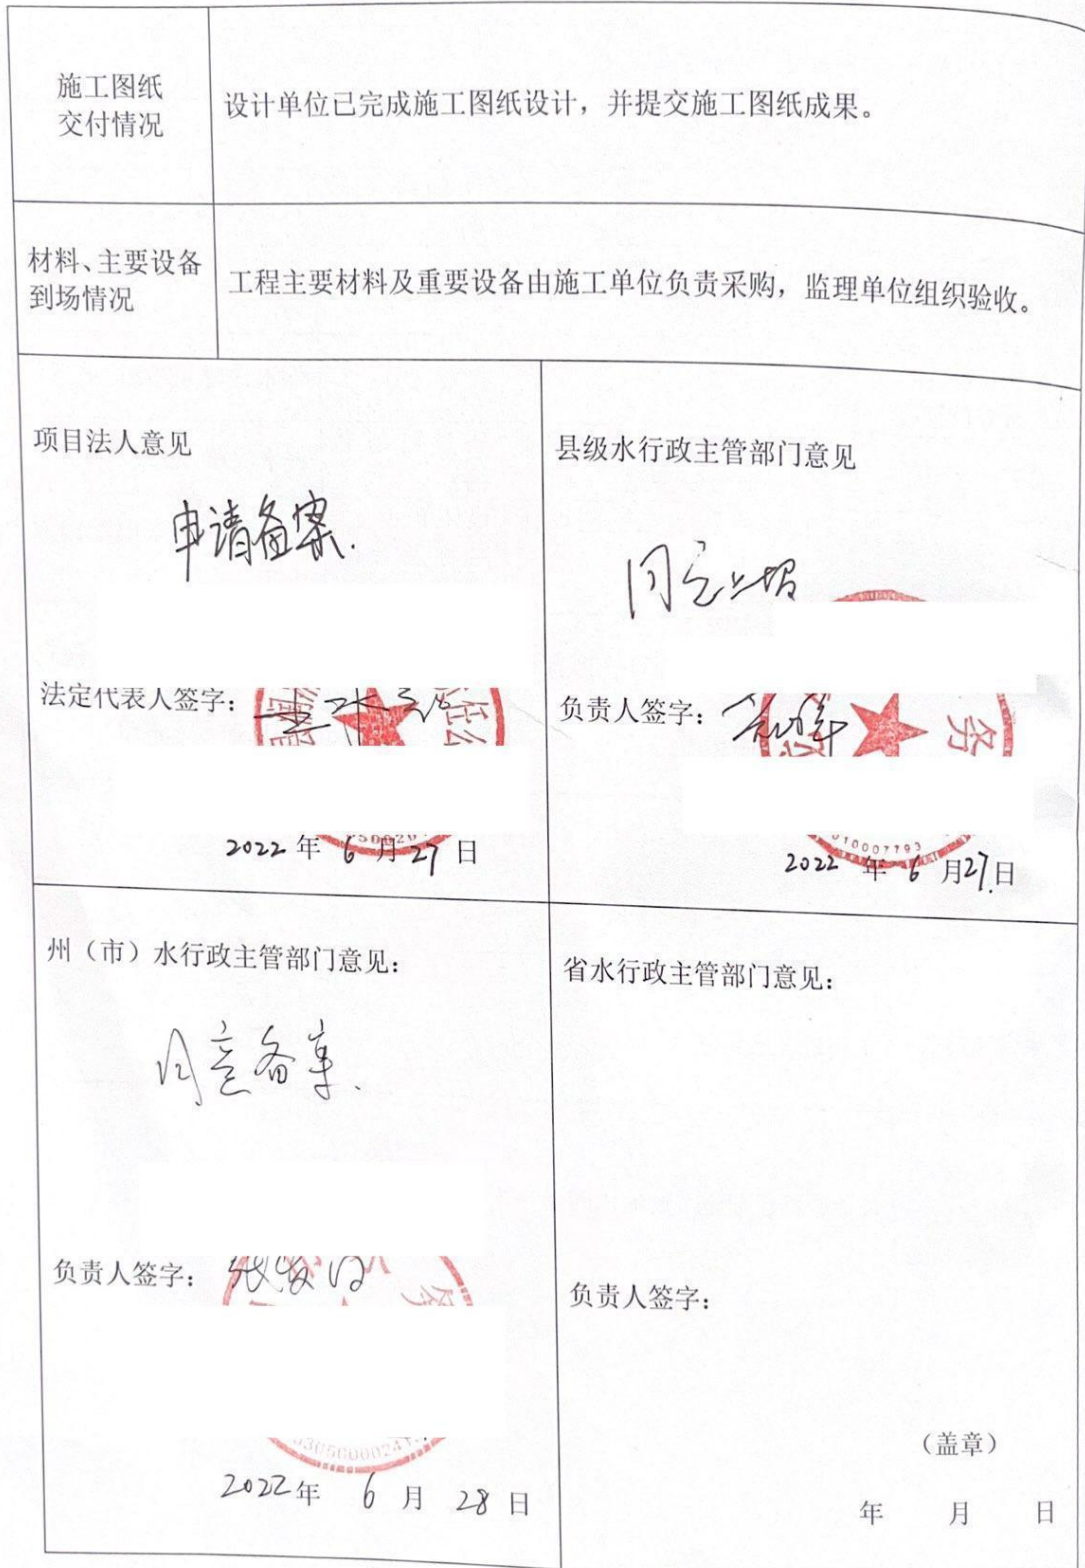 施工图纸
交付情况
设计单位已完成施工图纸设计，并提交施工图纸成果。
材料、主要设备
到场情况
工程主要材料及重要设备由施工单位负责采购，监理单位组织验收。
项目法人意见
申请备案.
法定代表人签字：
任公
35002
2022 年 6 月 27 日
县级水行政主管部门意见
同意上报
负责人签字：
务
010007793
2022 年 6 月 27.日
州（市）水行政主管部门意见：
同意备案.
负责人签字：
务
2022年 6 月 28 日
省水行政主管部门意见：
负责人签字：
（盖章）
年 月 日